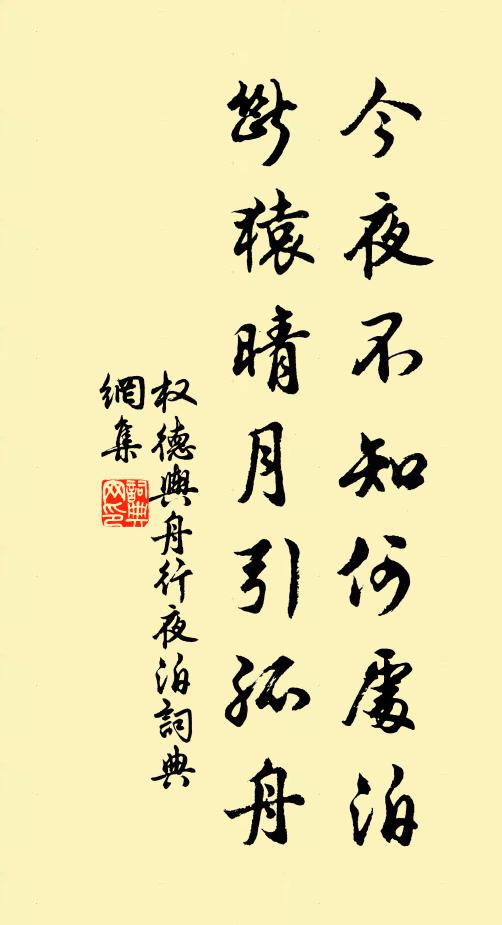 今夜不知何處泊
斷猿晴月引孤舟
权德輿舟行夜泊詞典
網集
詞典
网印